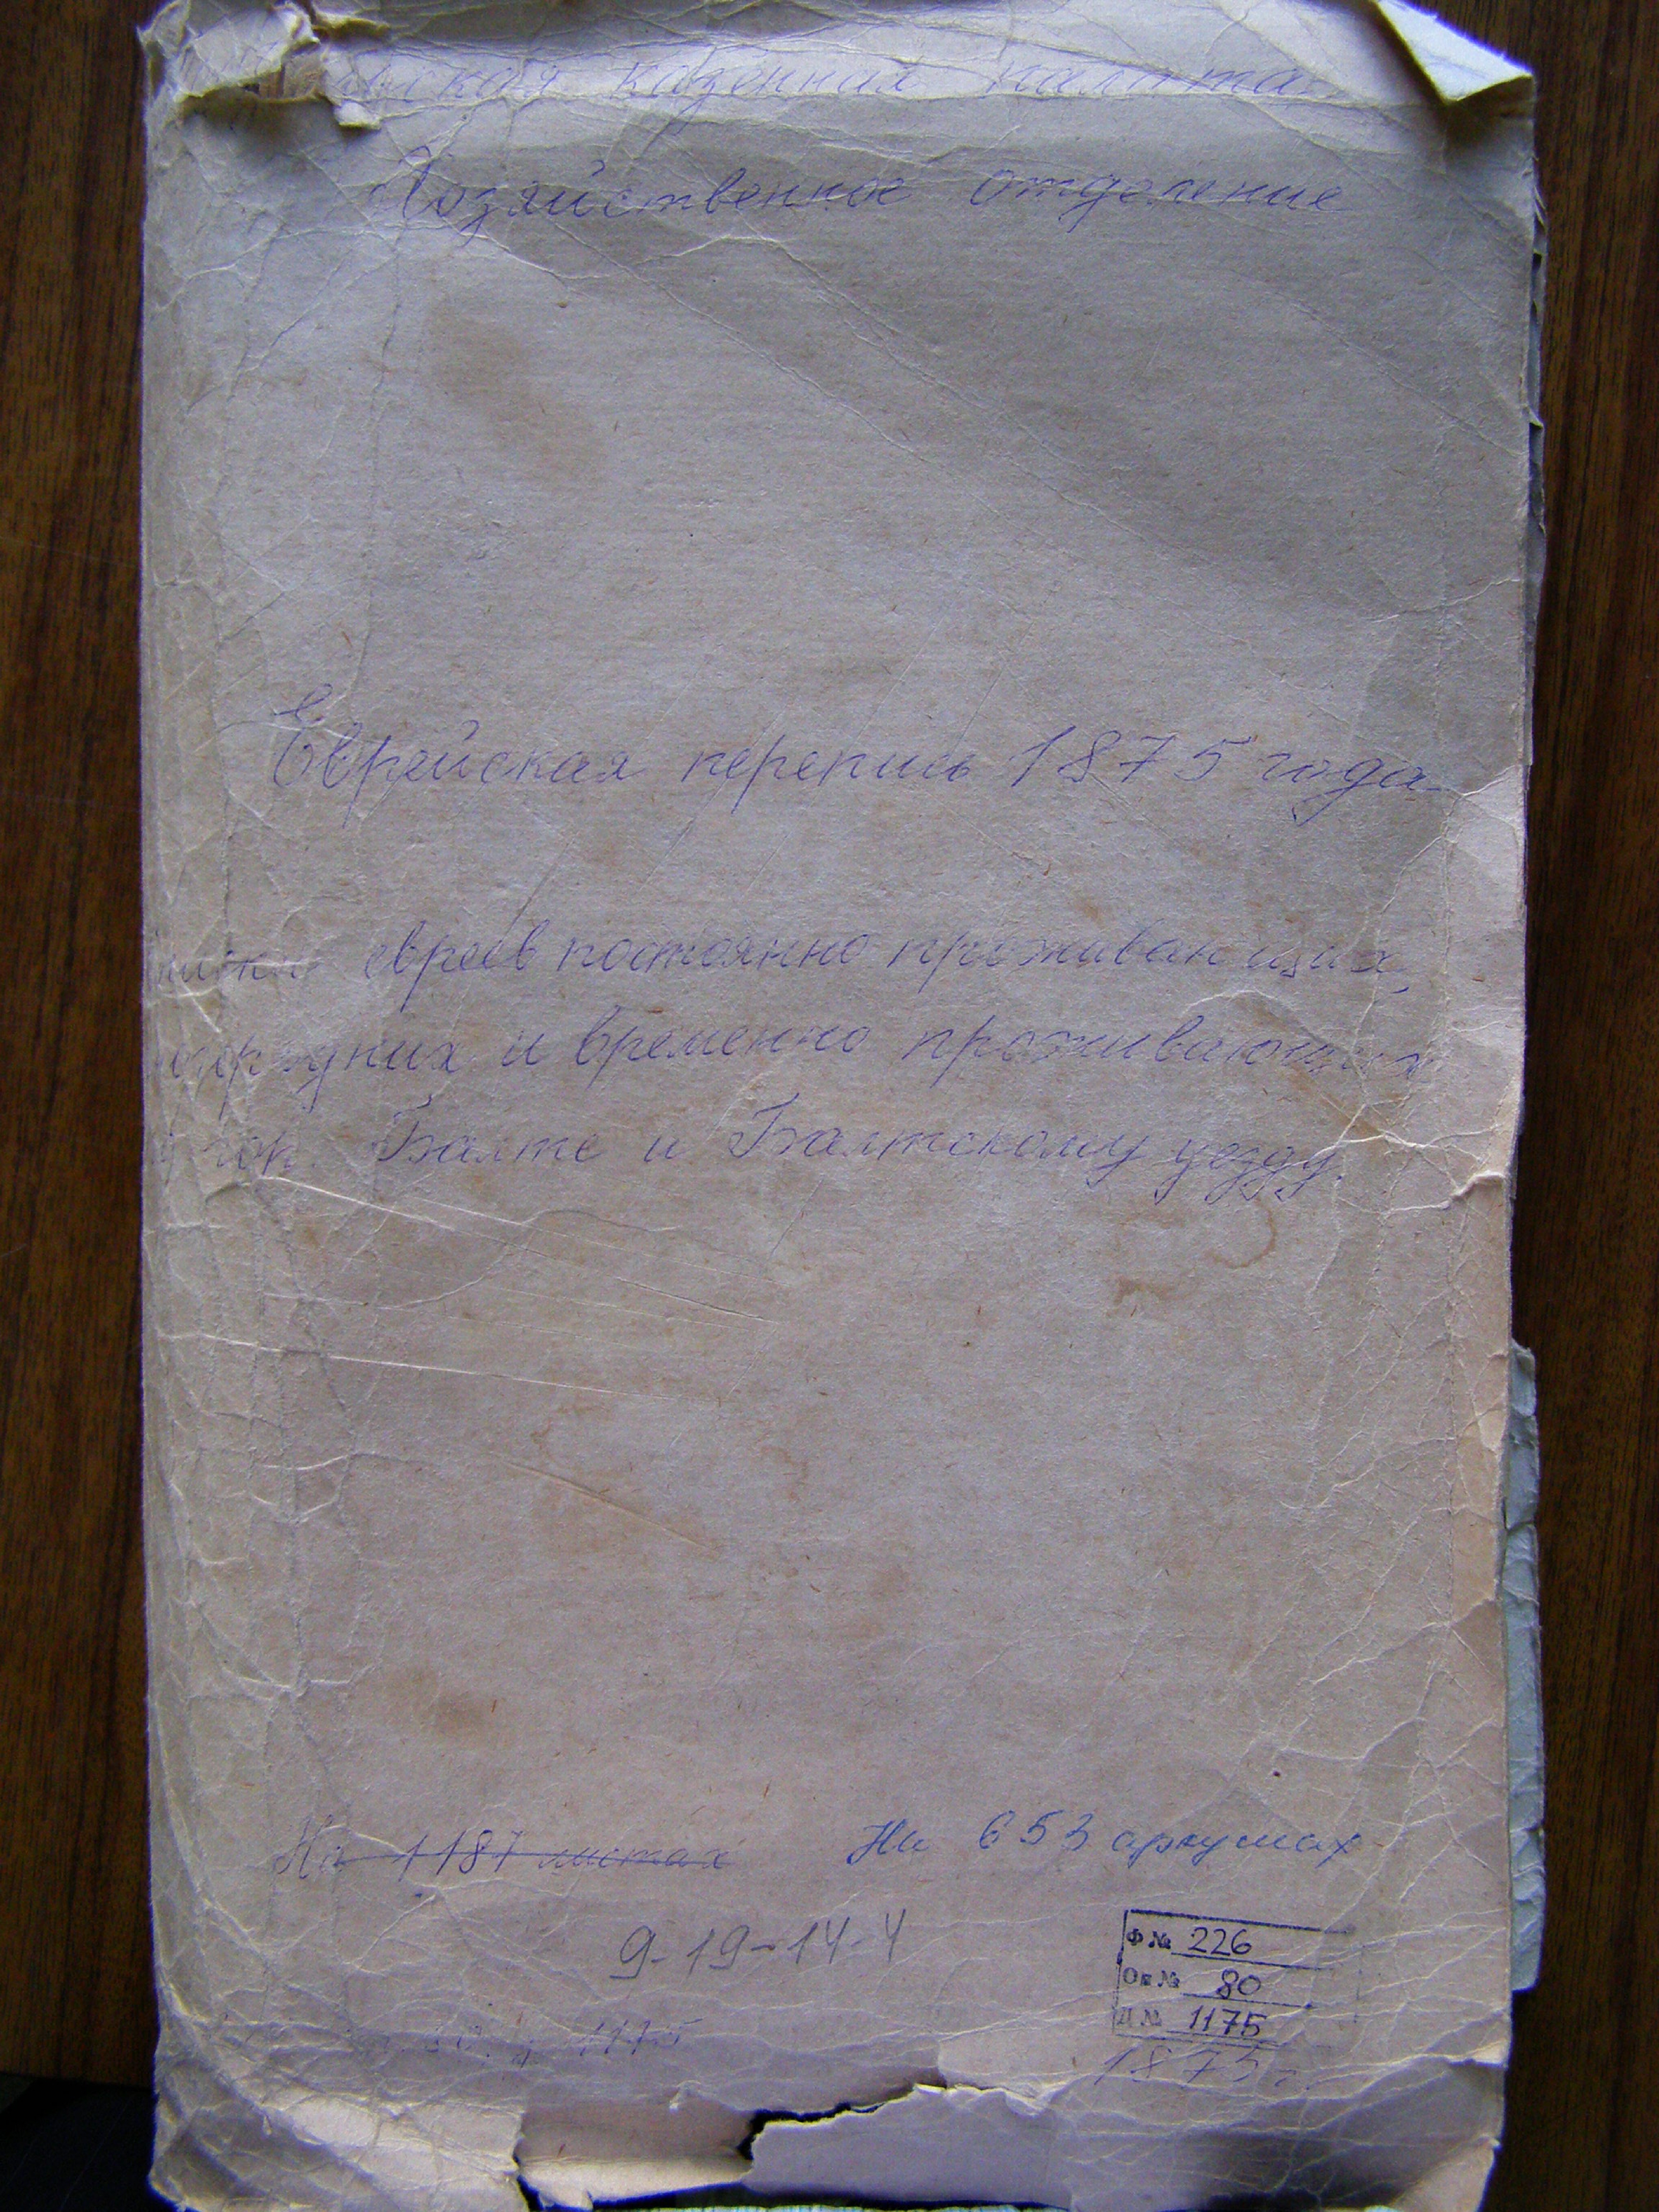 казенная палата
Хозяйственное отделение
Еврейская перепись 1875 года
евреев постоянно проживающих,
и временно проживающих
гор. Балте и Балтскому уезду.
На 1187 листах На 653 аркушах
9-19-14-4
Ф № 226
Оп № 80
Д № 1175
1175
1875 г.